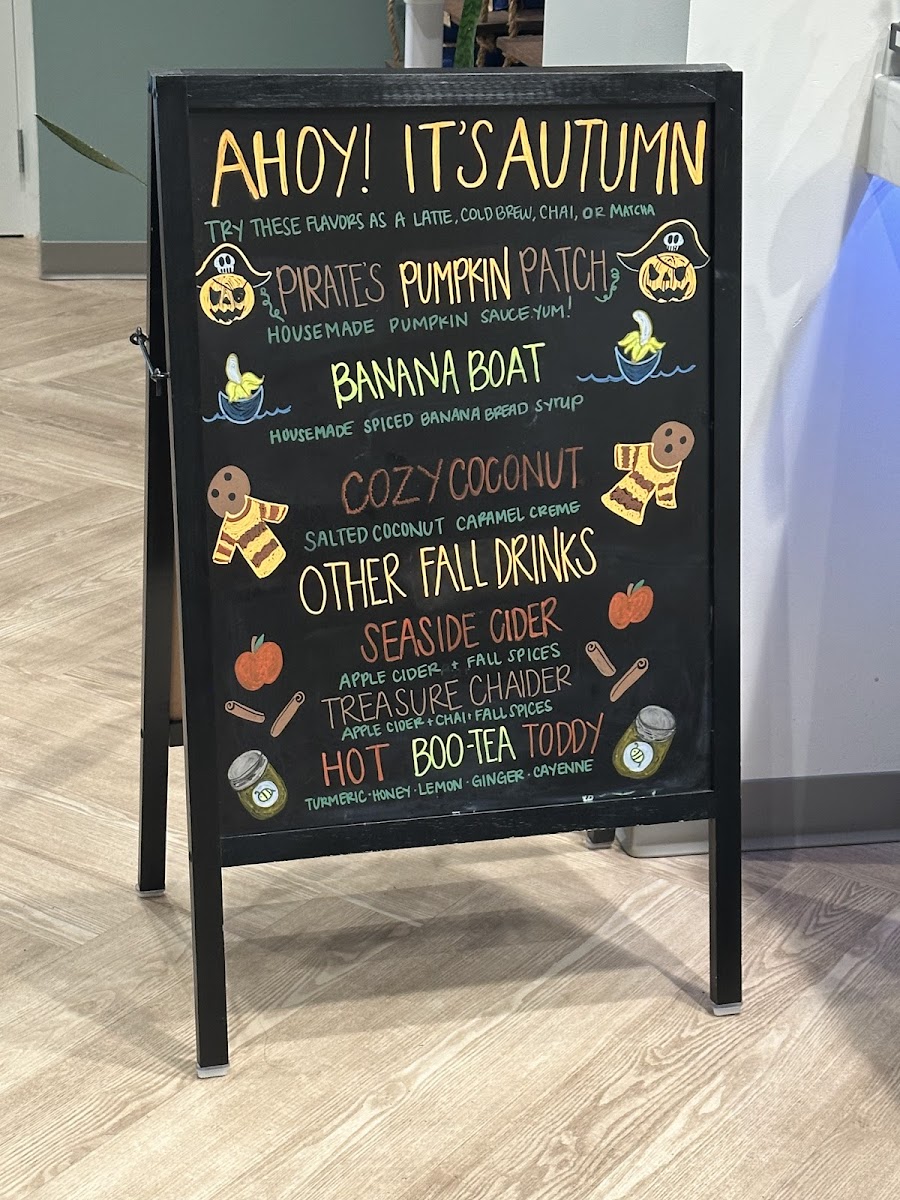 AHOY! IT'S AUTUMN
TRY THESE FLAVORS AS A LATTE, COLD BREW, CHAI, OR MATCHA
PIRATE'S PUMPKIN PATCH
HOUSEMADE PUMPKIN SAUCE. YUM!
BANANA BOAT
HOUSEMADE SPICED BANANA BREAD SYRUP
COZY COCONUT
SALTED COCONUT CARAMEL CREME
OTHER FALL DRINKS
SEASIDE CIDER
APPLE CIDER + FALL SPICES
TREASURE CHAIDER
APPLE CIDER + CHAI + FALL SPICES
HOT BOO-TEA TODDY
TURMERIC · HONEY · LEMON · GINGER · CAYENNE